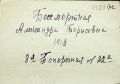 Бессмертная
Александра Борисовна
1918
8я Поперечная № 22а